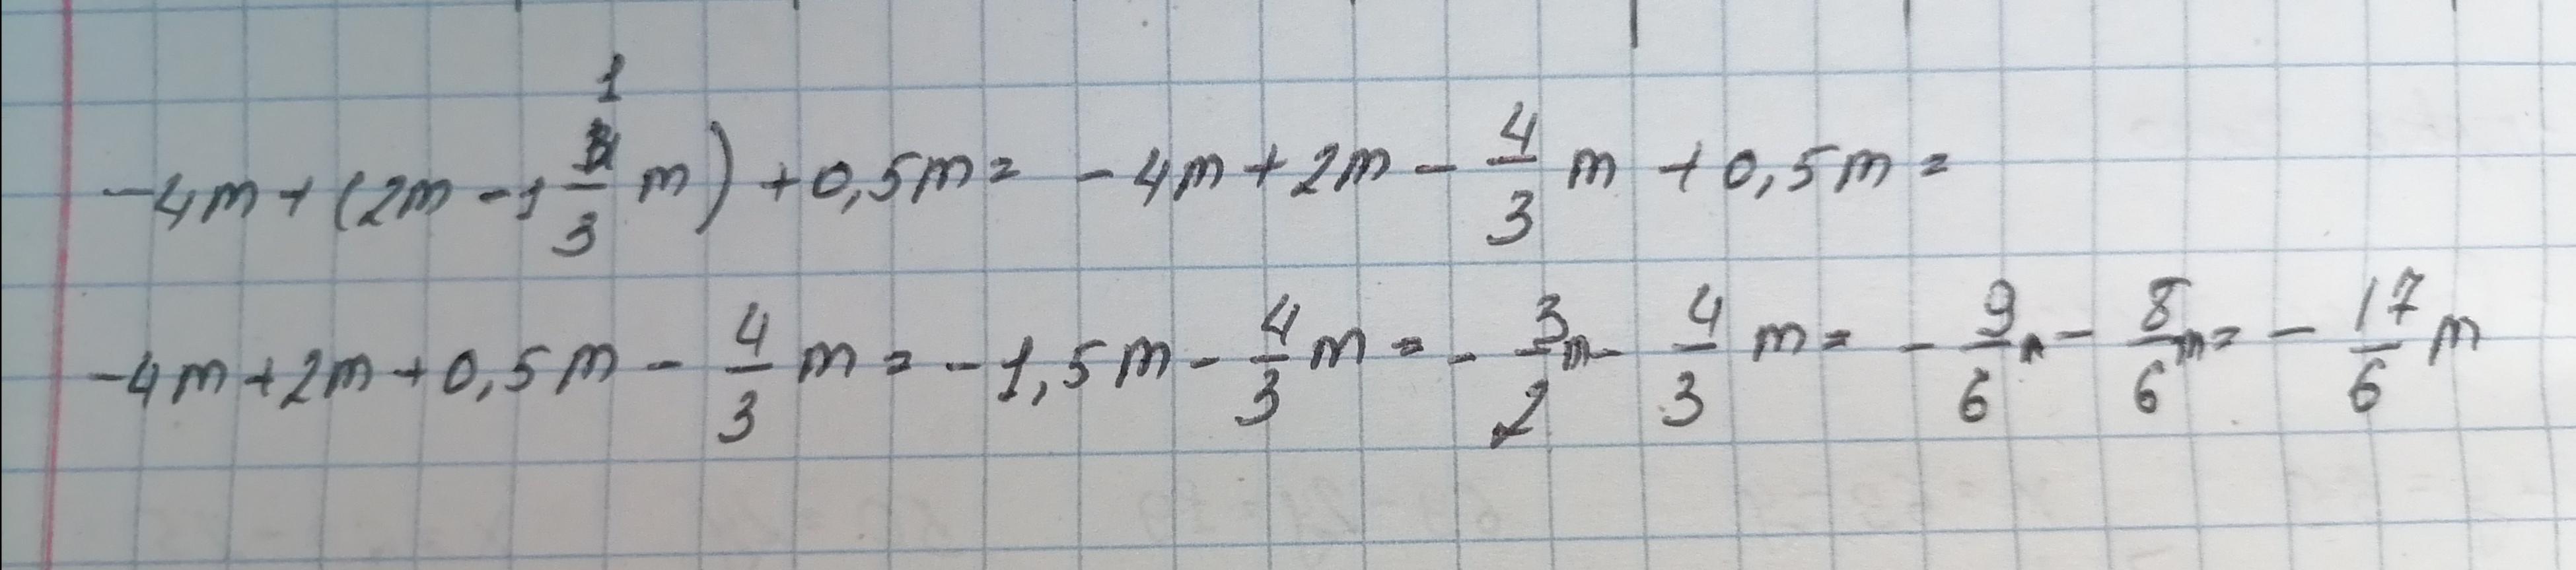 -4m+(2m-1 1/3 m)+0,5m= -4m+2m- 4/3 m+0,5m=
-4m+2m+0,5m- 4/3 m=-1,5m- 4/3 m=- 3/2 m- 4/3 m=- 9/6 m- 8/6 m=- 17/6 m